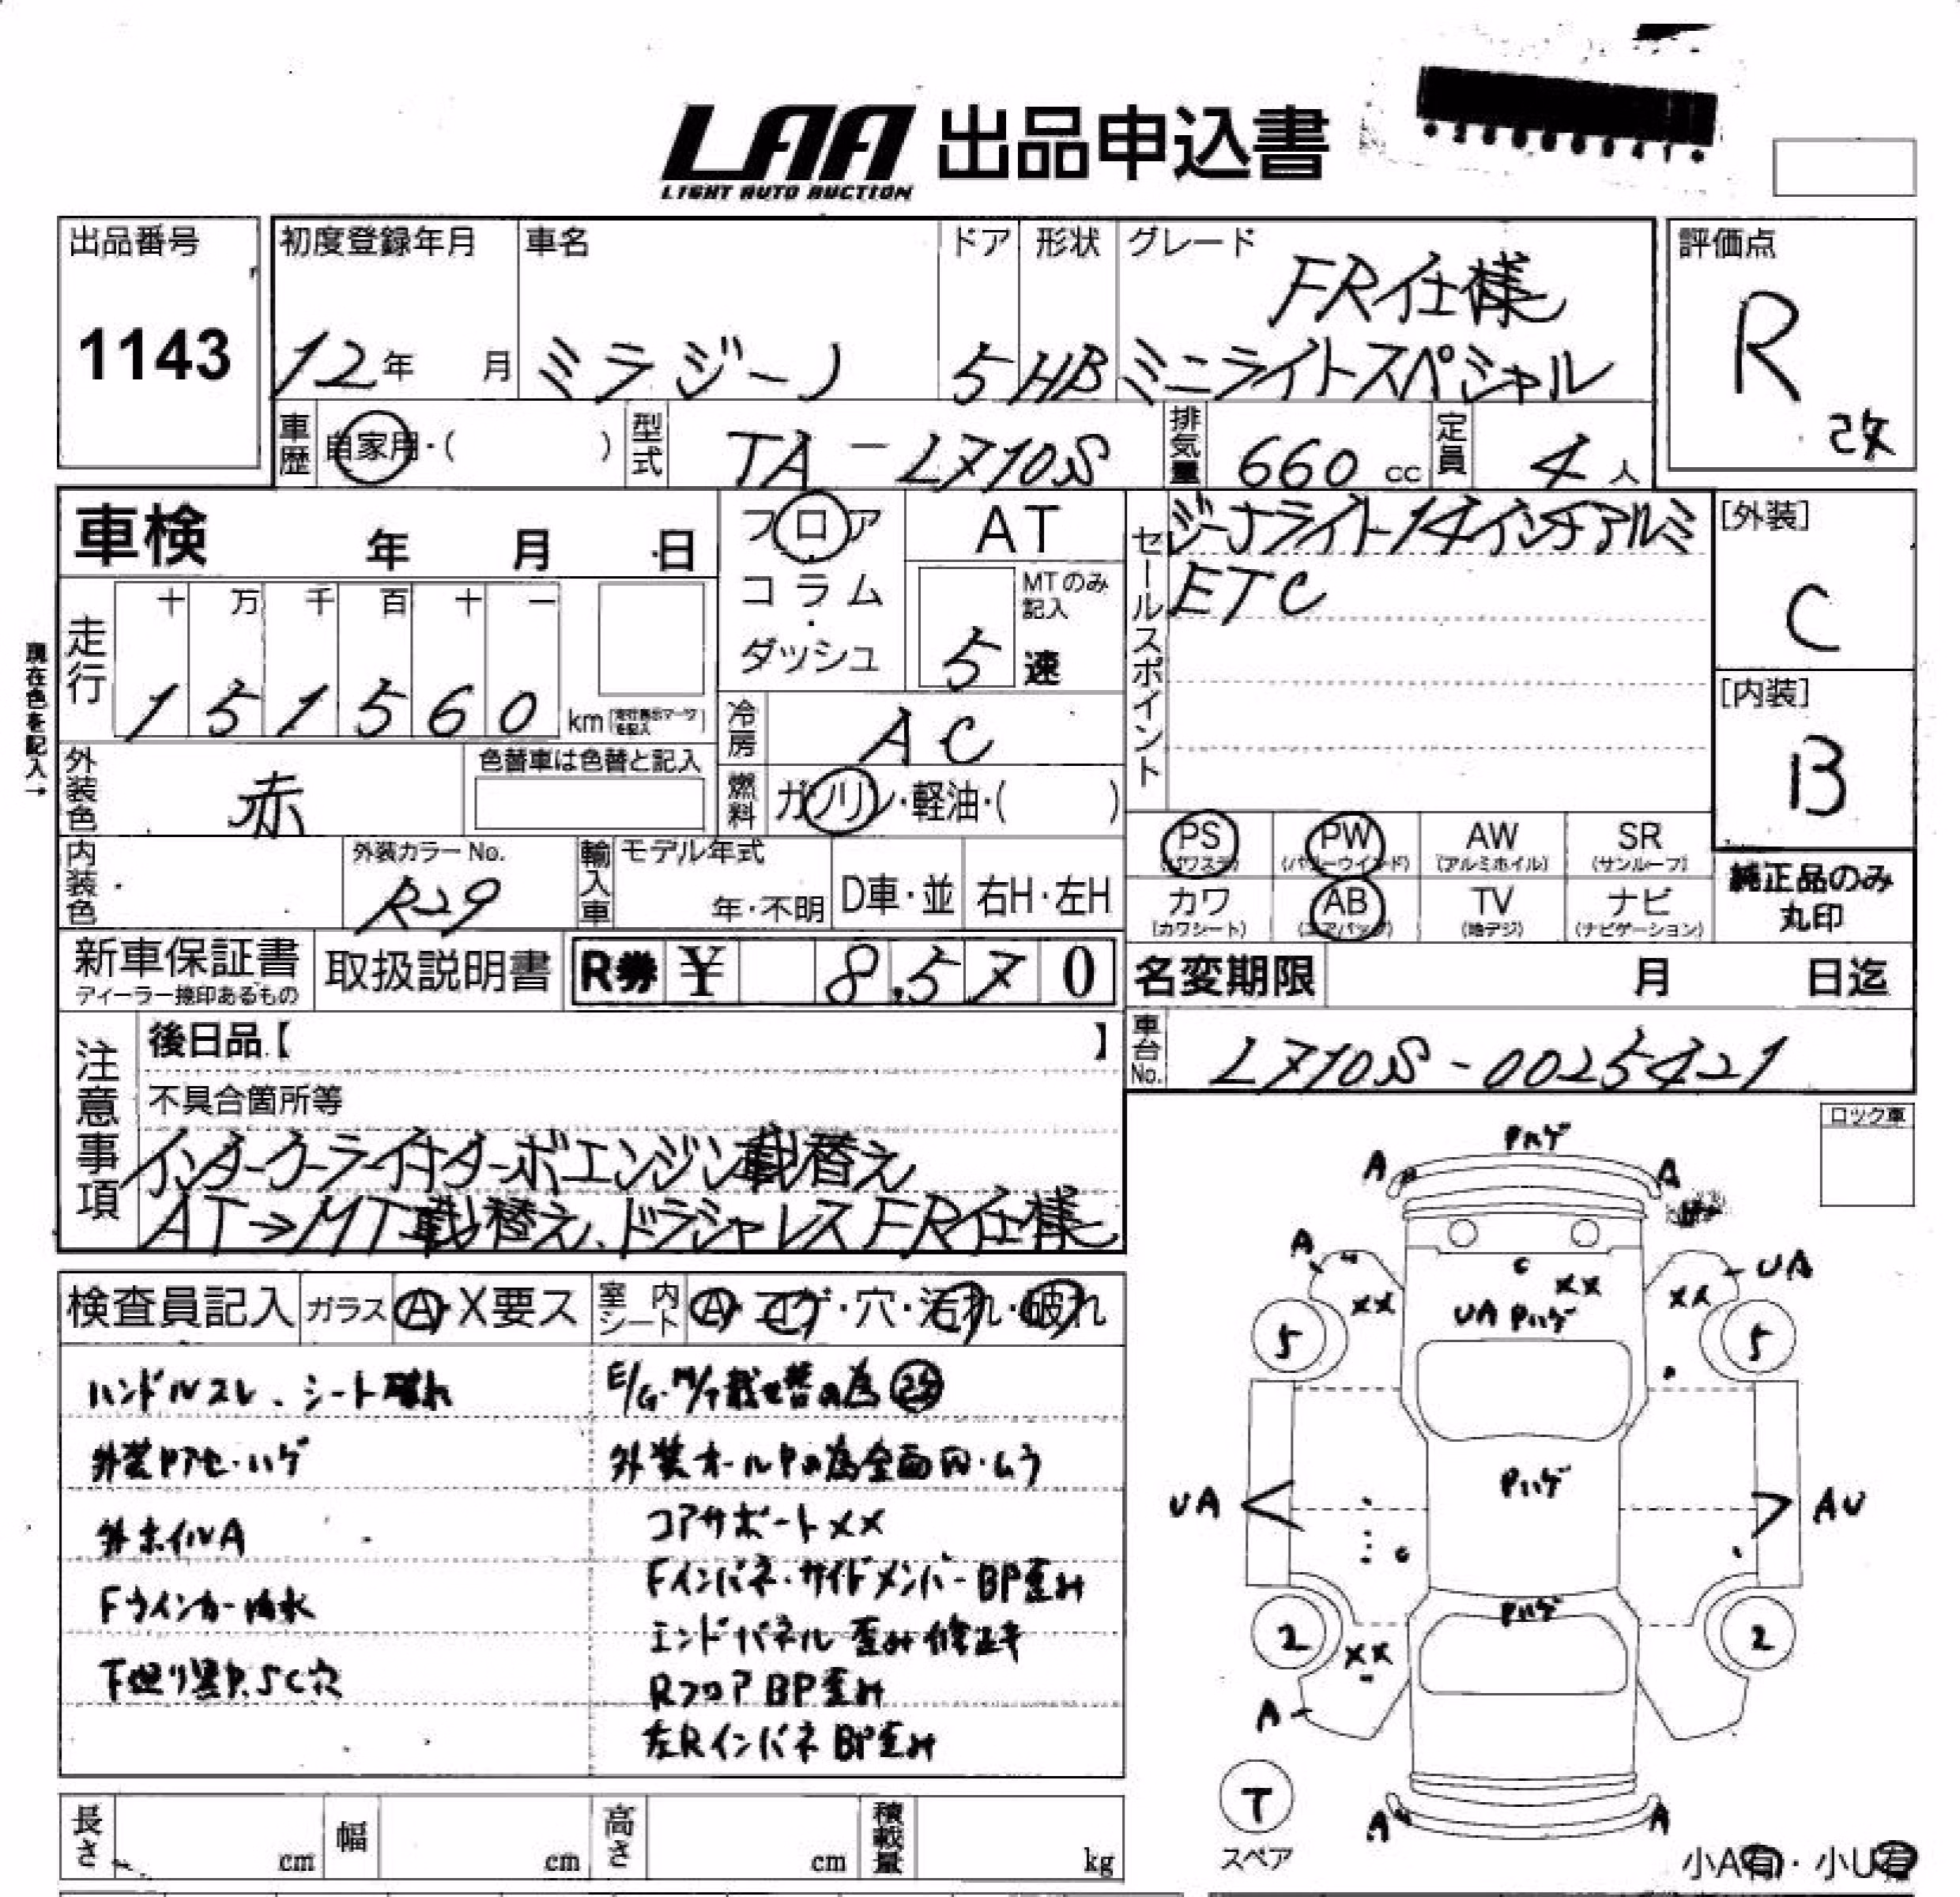 LAA 出品申込書
LIGHT AUTO AUCTION
出品番号
1143
初度登録年月
12年 月
車名
ミラジーノ
ドア
5
形状
HB
グレード
FR仕様
ミニライトスペシャル
評価点
R
改
車歴
自家用・( )
型式
TA-L710S
排気量
660 cc
定員
4 人
車検 年 月 日
フロア
コラム
ダッシュ
AT
MTのみ
記入
5 速
セールスポイント
ジーノライト14インチアルミ
ETC
[外装]
C
[内装]
B
現在色を記入→
走行
十 万 千 百 十 一
1 5 1 5 6 0 km
冷房
AC
外装色
赤
色替車は色替と記入
燃料
ガソリン・軽油・( )
内装色
外装カラーNo.
R29
輸入車
モデル年式
年・不明
D車・並
右H・左H
PS
(パワステ)
PW
(パワーウインド)
AW
(アルミホイル)
SR
(サンルーフ)
カワ
(カワシート)
AB
(エアバッグ)
TV
(地デジ)
ナビ
(ナビゲーション)
純正品のみ
丸印
新車保証書
ディーラー捺印あるもの
取扱説明書
R券 ¥ 8,570
名変期限 月 日迄
車台No.
L710S-0025421
注意事項
後日品【 】
不具合箇所等
インタークーラー付ターボエンジン載替え
AT→MT載替え、ドラシャレスFR仕様
ロック車
検査員記入
ガラス
A・X要ス
室内シート
A・コゲ・穴・汚れ・破れ
ハンドルスレ、シート破れ
外装Pアセ・ハゲ
外ホイルA
Fウインカー内水
下廻り黒P.SC穴
E/G・M/T載せ替の為改
外装オールPの為全面凹・ムラ
コアサポートXX
Fインパネ・サイドメンバーBP歪み
エンドパネル 歪み修正キ
RフロアBP歪み
左RインパネBP歪み
Pハゲ
A A
A
UA
C XX
XX
XX
UA Pハゲ
5 5
UA
Pハゲ
AU
C
Pハゲ
2 2
XX
A
T
スペア
A A
小A有・小U有
長さ cm
幅 cm
高さ cm
積載量 kg